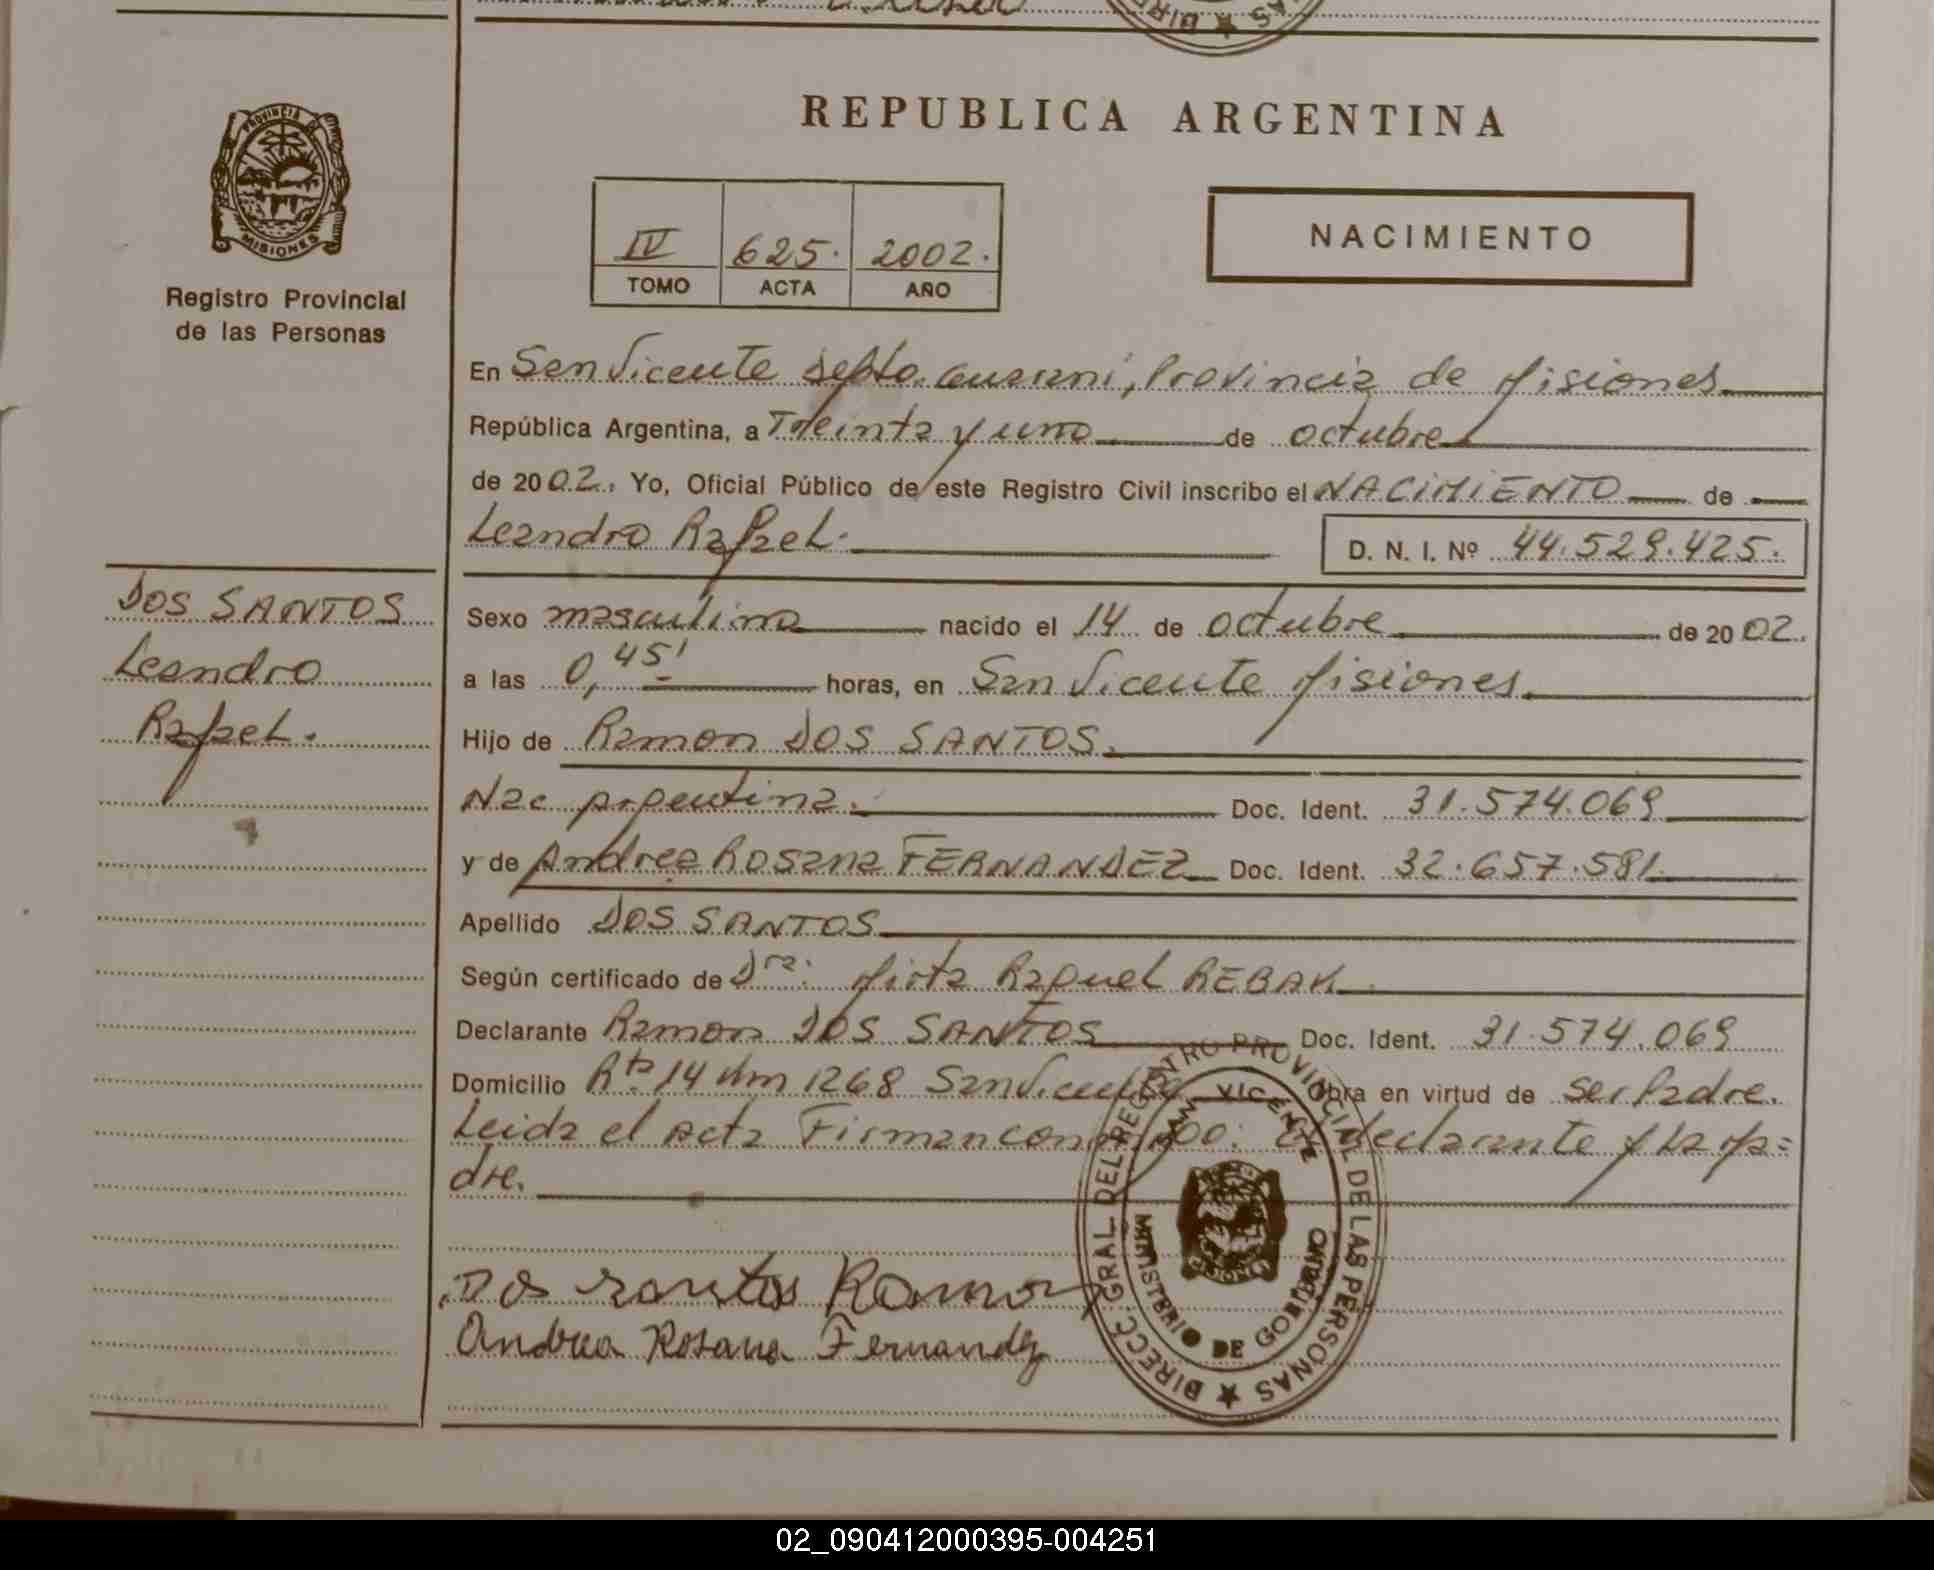 REPUBLICA ARGENTINA
PROVINCIA DE
MISIONES
Registro Provincial
de las Personas
IV 625. 2002.
TOMO ACTA AÑO
NACIMIENTO
En San Vicente Depto. Guarani, Provincia de Misiones
República Argentina, a Treinta y uno de octubre
de 2002. Yo, Oficial Público de este Registro Civil inscribo el NACIMIENTO de
Leandro Rafael.
D. N. I. Nº 44.529.425.
DOS SANTOS
Leandro
Rafael.
Sexo masculino nacido el 14 de octubre de 2002.
a las 0,45' horas, en San Vicente Misiones
Hijo de Ramon DOS SANTOS.
Nac Argentina. Doc. Ident. 31.574.069
y de Andrea Rosana FERNANDEZ Doc. Ident. 32.657.581
Apellido DOS SANTOS
Según certificado de Dra: Mirta Raquel REBAK
Declarante Ramon DOS SANTOS Doc. Ident. 31.574.069
Domicilio Rta 14 Km 1268 San Vicente Obra en virtud de ser Padre.
Leida el Acta Firman conmigo: El declarante y La Ma=
dre.
Dos Santos Ramon
Andrea Rosana Fernandez
DIRECC. GRAL. DEL REGISTRO PROVINCIAL DE LAS PERSONAS
SAN VICENTE
MINISTERIO DE GOBIERNO
MISIONES
02_090412000395-004251